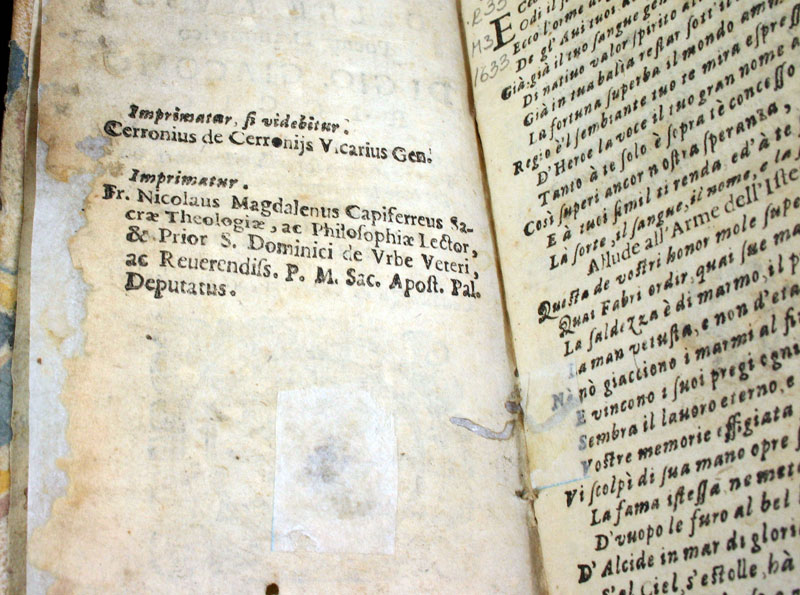 Imprimatur, si videbitur.
Cerronius de Cerronijs Vicarius Gen.
Imprimatur.
Fr. Nicolaus Magdalenus Capiferreus Sa-
cræ Theologiæ, ac Philosophiæ Lector,
& Prior S. Dominici de Vrbe Veteri,
ac Reuerendiss. P. M. Sac. Apost. Pal.
Deputatus.
1633
E
Odi il
Ecco l'orme
De gl' Aui tuoi
Già, già il tuo sangue
Di natiuo valor spirito
Già in tua balia restar sott'il
La fortuna superba il mondo
Regio è'l sembiante tuo te mira espress
D' Heroe la voce il tuo gran nome
Tanto à te solo è sopra tè concesso
Così superi ancor nostra speranza,
E à tuoi simil ti renda, ed'à te
La sorte, il sangue, il nome, e la
Allude all'Arme dell'Iste
Questa de vostri honor mole supe
Quai Fabri ordir, quai sue ma
La saldezza è di marmo, il p
La man vetusta, e non d'eta
Nò nò giacciono i marmi al fi
E vincono i suoi pregi ogni
Sembra il lauoro eterno, e
Vostre memorie effigiata
Vi scolpì di sua mano opre
La fama istessa ne mete
D'vuopo le furo al bel
D' Alcide in mar di glori
S'al Ciel, s'estolle, hà